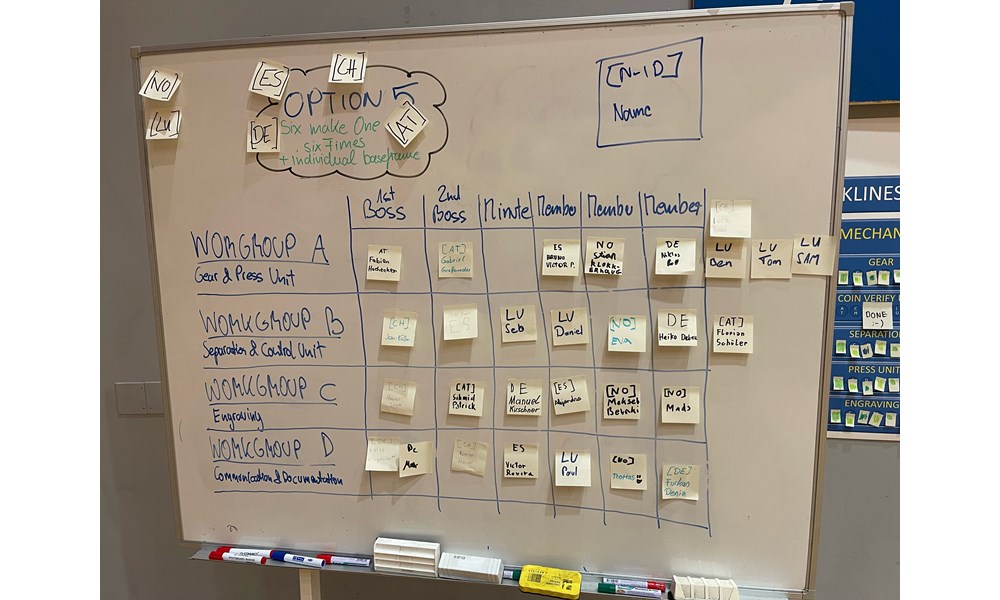 [NO]
[LU]
[ES]
[CH]
[DE]
[AT]
OPTION 5
Six make One
six Times
+ individual baseframe
[N-ID]
Name
1st Boss
2nd Boss
Minute
Membe
Membe
Member
WORKGROUP A
Gear & Press Unit
AT
Fabian
[AT]
Gabriel
ES
BRUNO
VICTOR P.
NO
Stian
DE
LU
Ben
LU
Tom
LU
SAM
WORKGROUP B
Separation & Control Unit
[CH]
ES
LU
Seb
LU
Daniel
[NO]
EVA
DE
Heiko
[AT]
Florian
Schüler
WORKGROUP C
Engraving
[AT]
Schmid
Patrick
DE
Manuel
Kirschner
[ES]
Alejandro
[NO]
[NO]
Mads
WORKGROUP D
Communication & Documentation
ES
Victor
Rovira
LU
Paul
[NO]
Thomas
[DE]
Furkan
Deniz
KLINES
MECHAN
GEAR
COIN VERIFY
DONE
:-)
SEPARATIO
PRESS UNIT
ENGRAVING